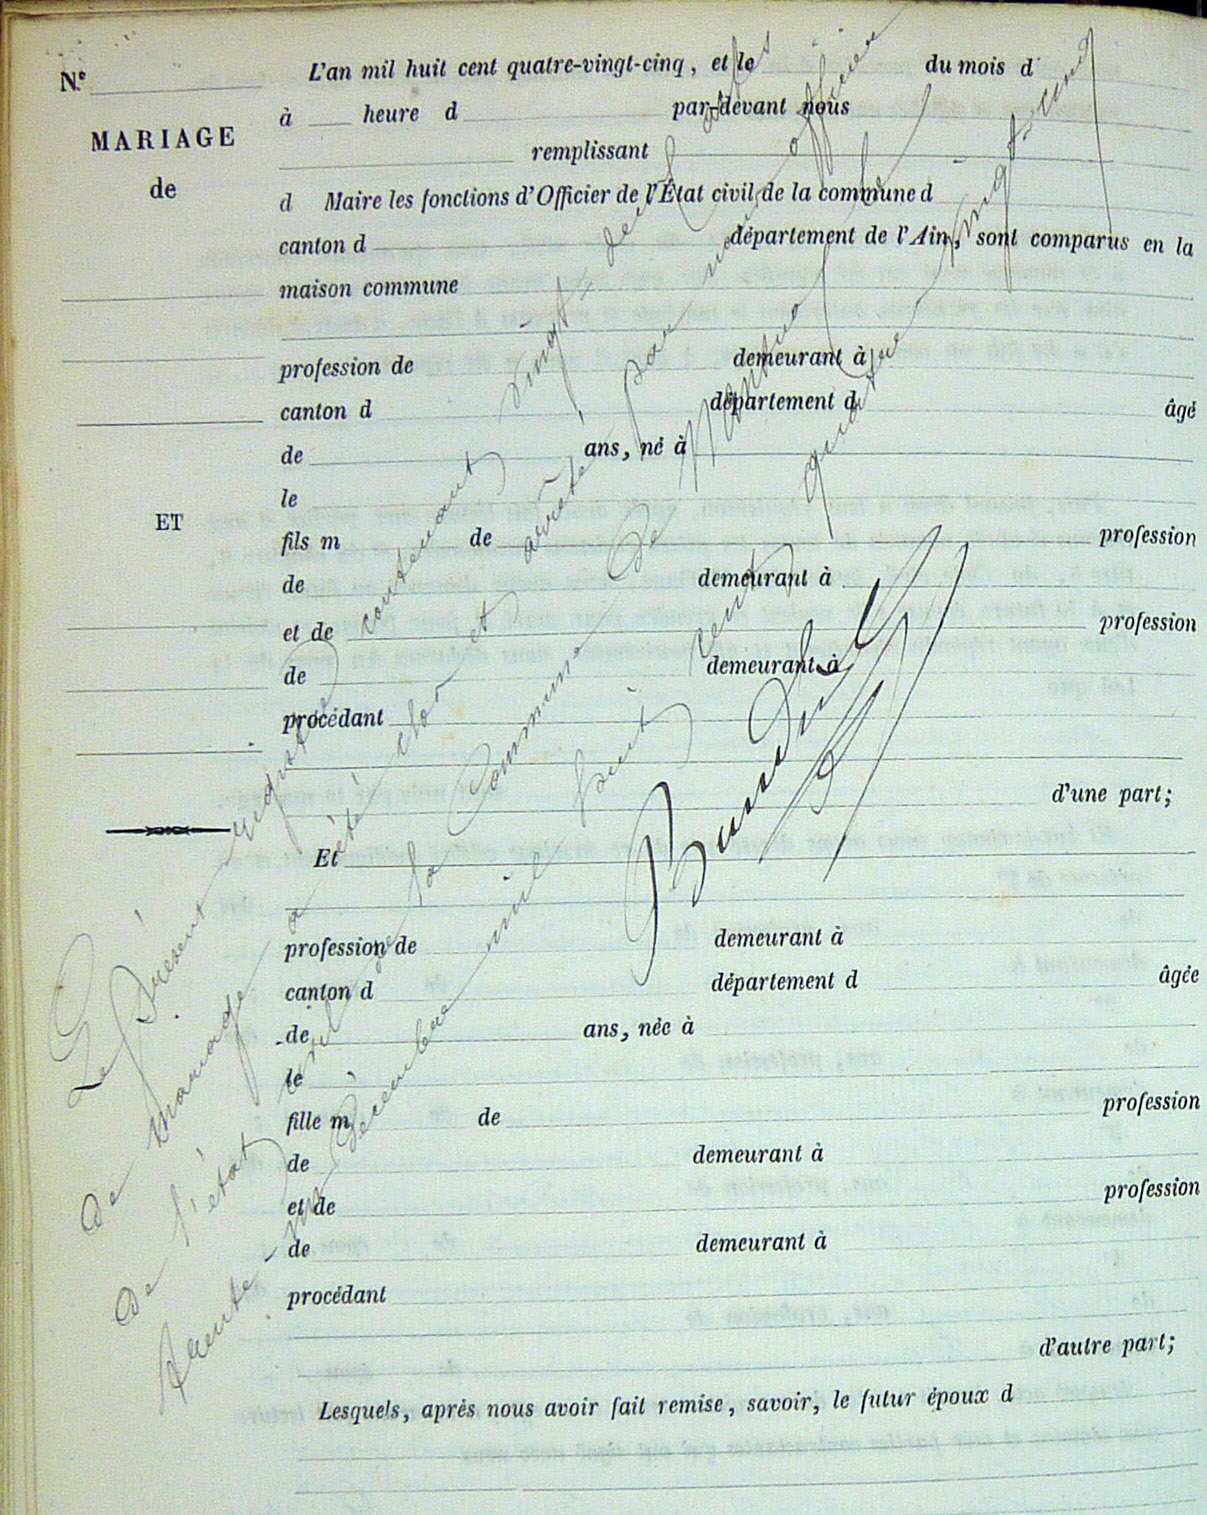 N.º
MARIAGE
de
ET
L'an mil huit cent quatre-vingt-cinq, et le du mois d
à heure d par-devant nous
remplissant
d Maire les fonctions d'Officier de l'État civil de la commune d
canton d département de l'Ain, sont comparus en la
maison commune
profession de demeurant à
canton d département d âgé
de ans, né à
le
fils m de profession
de demeurant à
et de profession
de demeurant à
procédant
d'une part;
Et
profession de demeurant à
canton d département d âgée
de ans, née à
le
fille m de profession
de demeurant à
et de profession
de demeurant à
procédant
d'autre part;
Lesquels, après nous avoir fait remise, savoir, le futur époux d
Le présent registre contenant vingt-deux actes
de mariage a été clos et arrêté par nous officier
de l'état civil de la Commune de le
trente-un décembre mil huit cent quatre vingt-cinq